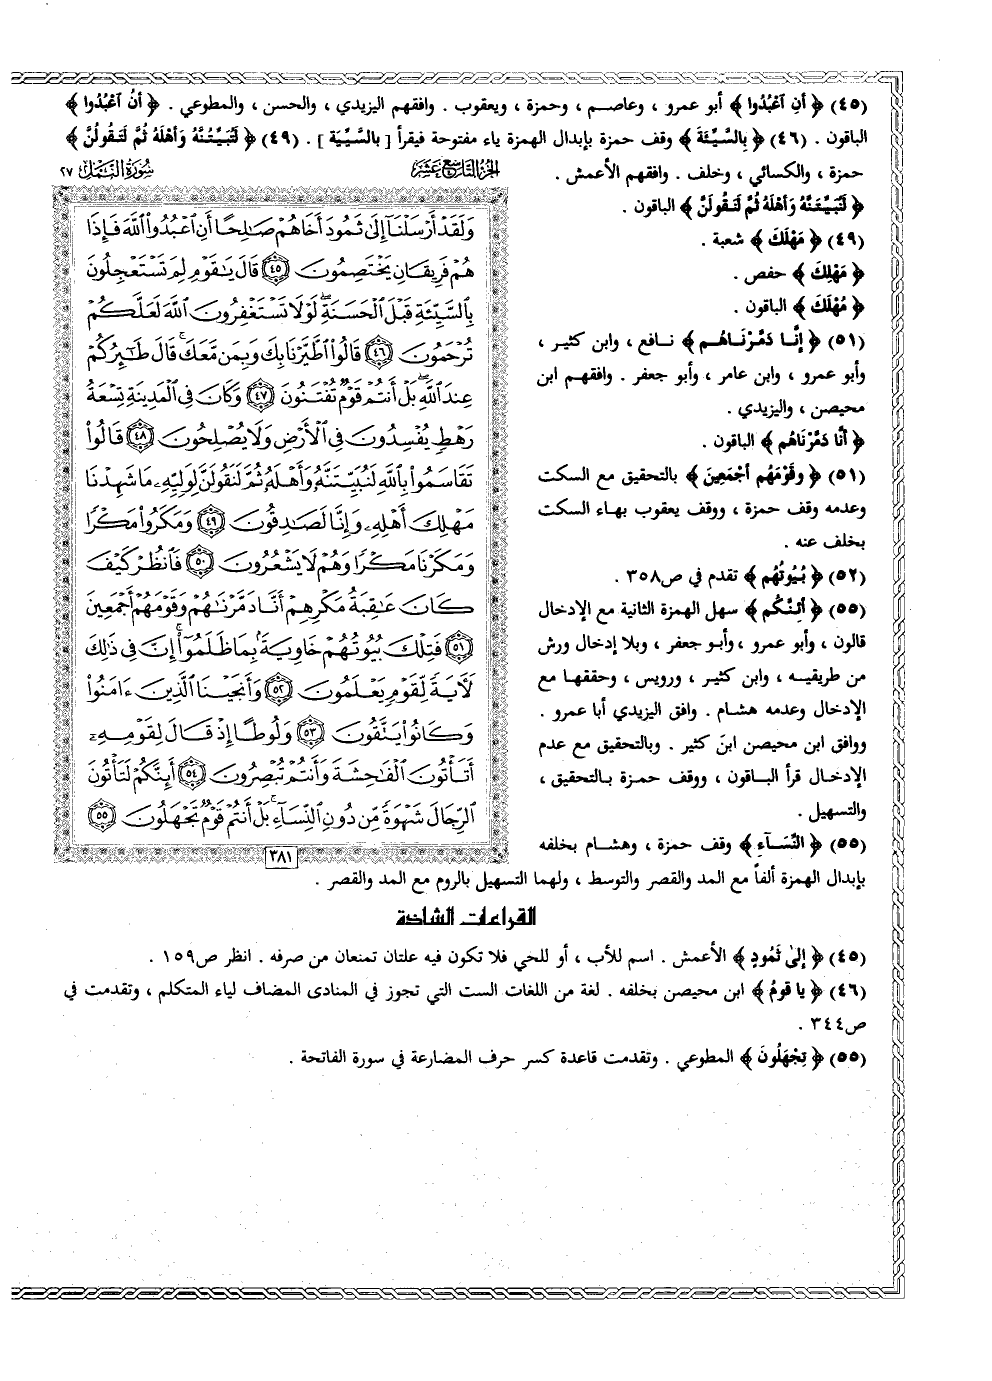 (٤٥) ﴿ أَنِ اَعْبُدُوا ﴾ أبو عمرو ، وعاصم ، وحمزة ، ويعقوب . وافقهم اليزيدي ، والحسن ، والمطوعي . ﴿ أَنُ اَعْبُدُوا ﴾
الباقون . (٤٦) ﴿ بِالسَّيِّئَةَ ﴾ وقف حمزة بإبدال الهمزة ياء مفتوحة فيقرأ [ بالسَّيِّيَة ] . (٤٩) ﴿ لَتُبَيِّتُنَّهُ وَأهْلَهُ ثُمَّ لَتَقُولُنَّ ﴾
حمزة ، والكسائي ، وخلف . وافقهم الأعمش .
﴿ لَنُبَيِّتَنَّهُ وَأهْلَهُ ثُمَّ لَنَقُولَنَّ ﴾ الباقون .
(٤٩) ﴿ مَهْلَكَ ﴾ شعبة .
﴿ مَهْلِكَ ﴾ حفص .
﴿ مُهْلَكَ ﴾ الباقون .
(٥١) ﴿ إِنَّا دَمَّرْنَاهُم ﴾ نافع ، وابن كثير ،
وأبو عمرو ، وابن عامر ، وأبو جعفر . وافقهم ابن
محيصن ، واليزيدي .
﴿ أَنَّا دَمَّرْنَاهُم ﴾ الباقون .
(٥١) ﴿ وقَوْمَهُم أجْمَعِينَ ﴾ بالتحقيق مع السكت
وعدمه وقف حمزة ، ووقف يعقوب بهاء السكت
بخلف عنه .
(٥٢) ﴿ بُيُوتُهُم ﴾ تقدم في ص٣٥٨ .
(٥٥) ﴿ أئِنَّكُم ﴾ سهل الهمزة الثانية مع الإدخال
قالون ، وأبو عمرو ، وأبو جعفر ، وبلا إدخال ورش
من طريقيه ، وابن كثير ، ورويس ، وحققها مع
الإدخال وعدمه هشام . وافق اليزيدي أبا عمرو .
ووافق ابن محيصن ابنَ كثير . وبالتحقيق مع عدم
الإدخال قرأ الباقون ، ووقف حمزة بالتحقيق ،
والتسهيل .
(٥٥) ﴿ النِّسَآءِ ﴾ وقف حمزة ، وهشام بخلفه
بإبدال الهمزة ألفاً مع المد والقصر والتوسط ، ولهما التسهيل بالروم مع المد والقصر .
الجزء التاسع عشر
سورة النمل ٢٧
وَلَقَدْ أَرْسَلْنَآ إِلَىٰ ثَمُودَ أَخَاهُمْ صَـٰلِحًا أَنِ ٱعْبُدُوا۟ ٱللَّهَ فَإِذَا
هُمْ فَرِيقَانِ يَخْتَصِمُونَ ٤٥ قَالَ يَـٰقَوْمِ لِمَ تَسْتَعْجِلُونَ
بِٱلسَّيِّئَةِ قَبْلَ ٱلْحَسَنَةِ ۖ لَوْلَا تَسْتَغْفِرُونَ ٱللَّهَ لَعَلَّكُمْ
تُرْحَمُونَ ٤٦ قَالُوا۟ ٱطَّيَّرْنَا بِكَ وَبِمَن مَّعَكَ ۚ قَالَ طَـٰٓئِرُكُمْ
عِندَ ٱللَّهِ ۖ بَلْ أَنتُمْ قَوْمٌ تُفْتَنُونَ ٤٧ وَكَانَ فِى ٱلْمَدِينَةِ تِسْعَةُ
رَهْطٍ يُفْسِدُونَ فِى ٱلْأَرْضِ وَلَا يُصْلِحُونَ ٤٨ قَالُوا۟
تَقَاسَمُوا۟ بِٱللَّهِ لَنُبَيِّتَنَّهُۥ وَأَهْلَهُۥ ثُمَّ لَنَقُولَنَّ لِوَلِيِّهِۦ مَا شَهِدْنَا
مَهْلِكَ أَهْلِهِۦ وَإِنَّا لَصَـٰدِقُونَ ٤٩ وَمَكَرُوا۟ مَكْرًا
وَمَكَرْنَا مَكْرًا وَهُمْ لَا يَشْعُرُونَ ٥٠ فَٱنظُرْ كَيْفَ
كَانَ عَـٰقِبَةُ مَكْرِهِمْ أَنَّا دَمَّرْنَـٰهُمْ وَقَوْمَهُمْ أَجْمَعِينَ
٥١ فَتِلْكَ بُيُوتُهُمْ خَاوِيَةًۢ بِمَا ظَلَمُوٓا۟ ۗ إِنَّ فِى ذَٰلِكَ
لَـَٔايَةً لِّقَوْمٍ يَعْلَمُونَ ٥٢ وَأَنجَيْنَا ٱلَّذِينَ ءَامَنُوا۟
وَكَانُوا۟ يَتَّقُونَ ٥٣ وَلُوطًا إِذْ قَالَ لِقَوْمِهِۦٓ
أَتَأْتُونَ ٱلْفَـٰحِشَةَ وَأَنتُمْ تُبْصِرُونَ ٥٤ أَئِنَّكُمْ لَتَأْتُونَ
ٱلرِّجَالَ شَهْوَةً مِّن دُونِ ٱلنِّسَآءِ ۚ بَلْ أَنتُمْ قَوْمٌ تَجْهَلُونَ ٥٥
٣٨١
القراءات الشاذة
(٤٥) ﴿ إِلىٰ ثَمُودٍ ﴾ الأعمش . اسم للأب ، أو للحي فلا تكون فيه علتان تمنعان من صرفه . انظر ص١٥٩ .
(٤٦) ﴿ يا قومُ ﴾ ابن محيصن بخلفه . لغة من اللغات الست التي تجوز في المنادى المضاف لياء المتكلم ، وتقدمت في
ص٣٤٤ .
(٥٥) ﴿ تِجْهَلُونَ ﴾ المطوعي . وتقدمت قاعدة كسر حرف المضارعة في سورة الفاتحة .